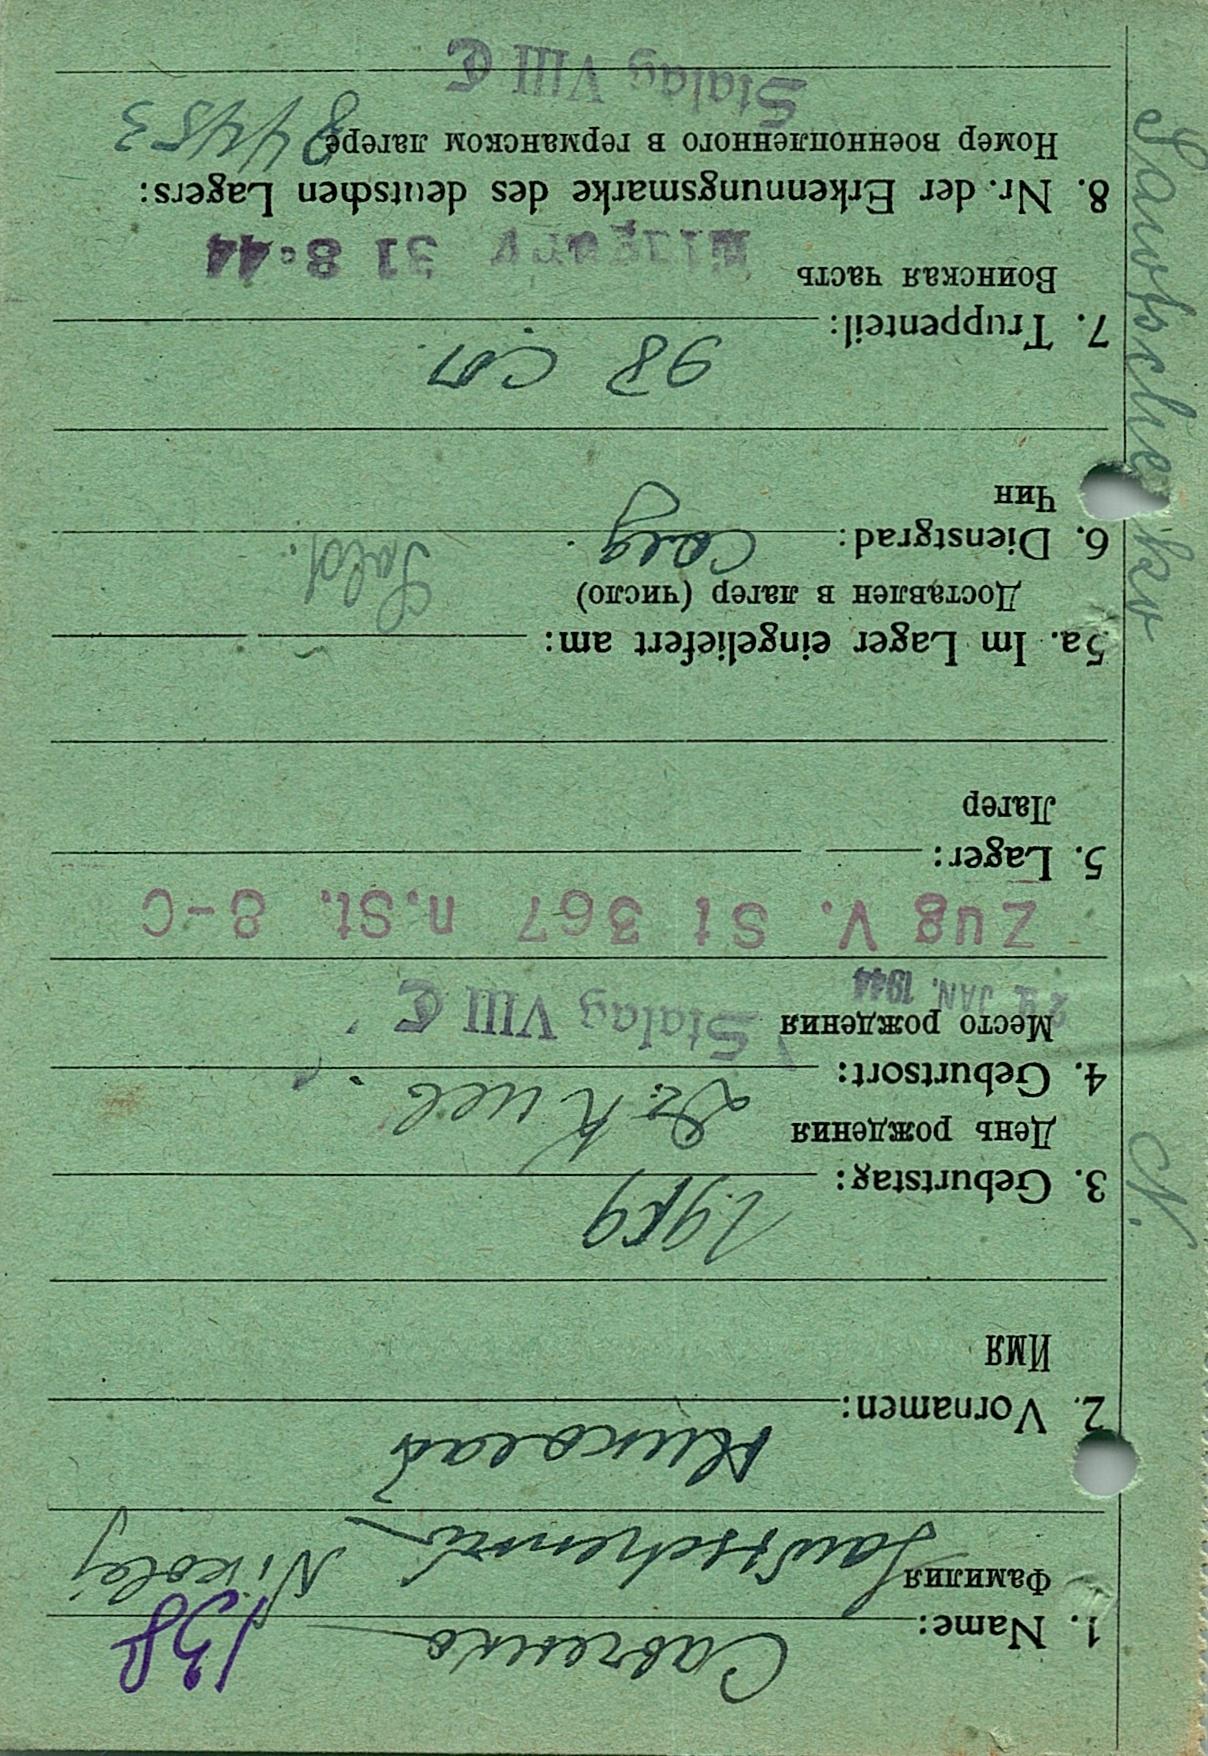 138
1. Name: Савченко
Фамилия Sawtschenko Nikolej
2. Vornamen: Николай
Имя
3. Geburtstag:
День рождения
4. Geburtsort: г. Киев
Место рождения Stalag VIII C
29 JAN. 1944
Zug V. St 367 n.St. 8-C
5. Lager:
Лагер
5a. Im Lager eingeliefert am:
Доставлен в лагер (число)
6. Dienstgrad: Солд. Sold.
Чин
7. Truppenteil: 98 сп.
Воинская часть
31 8.44
8. Nr. der Erkennungsmarke des deutschen Lagers:
Номер военнопленного в германском лагере 84453
Stalag VIII C
Sawtschenko N.